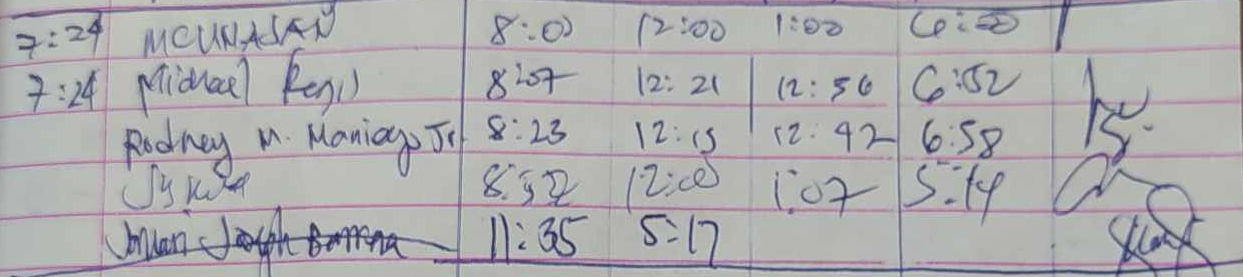 7:24 MCUNASAN 8:00 12:00 1:00 6:00
7:24 Michael Regil 8:07 12:21 12:56 6:52
Rodney M. Maniago Jr. 8:23 12:15 12:42 6:58
8:32 12:00 1:07 5:14
Joseph 11:35 5:17